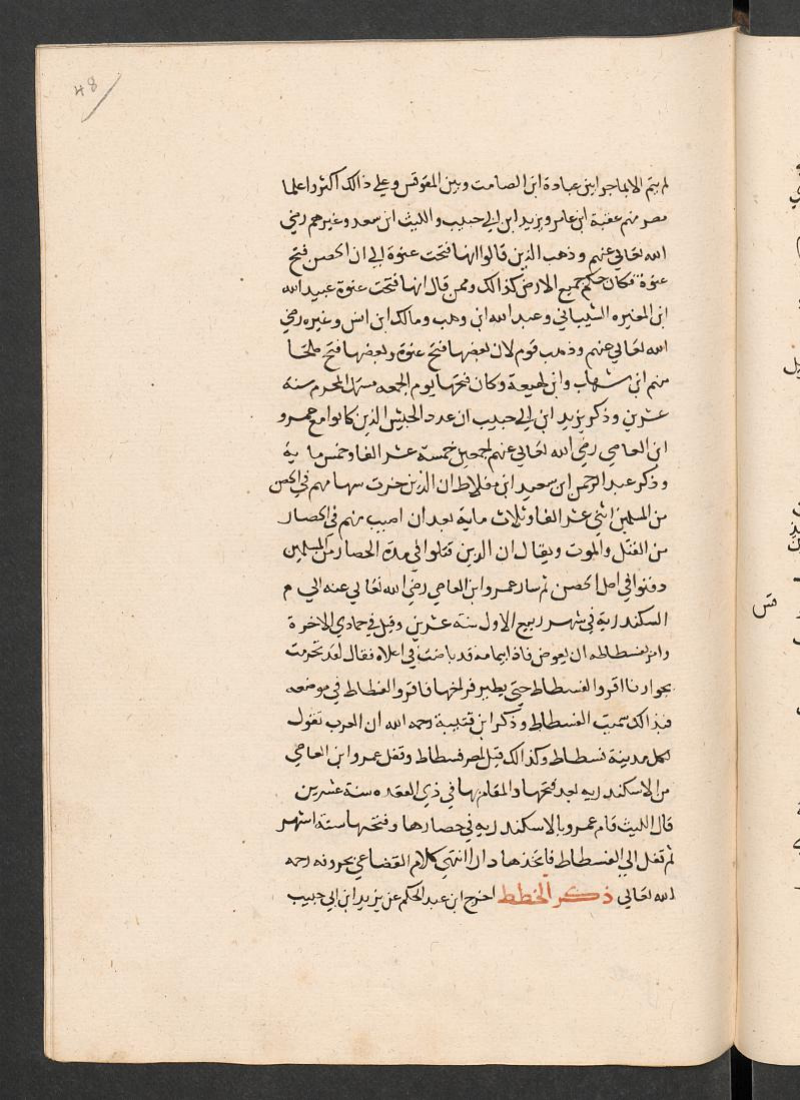 48
لم يتم الا بما جرا بين عبادة ابن الصامت وبين المقوقس وعلي ذالك اكثر واعلما
مصر منهم عقبة ابن عامر ويزيد ابن ابي حبيب والليث ابن سعد وغيرهم رضي
الله تعالي عنهم وذهب الذين قالوا انها فتحت عنوة الي ان الحصن فتح
عنوة فكان حكم جميع الارض كذالك وممن قال انها فتحت عنوة عبيد الله
ابن المغيره الشيباني وعبد الله ابن وهب ومالك ابن انس وغيره رضي
الله تعالي عنهم وذهب قوم لان بعضها فتح عنوة وبعضها فتح صلحا
منهم ابن شهاب وابن لهيعة وكان فتحها يوم الجمعه مستهل المحرم سنه
عشرين وذكر يزيد ابن ابي حبيب ان عدد الجيش الذين كانوا مع عمرو
ابن العاصي رضي الله تعالي عنهم اجمعين خمسة عشر الفا وخمس ماية
وذكر عبد الرحمن ابن سعيد ابن مقلاط ان الذين جرت سهامهم في الحصن
من المسلمين اثني عشر الفا وثلاث ماية بعد ان اصيب منهم في الحصار
من القتل والموت ويقال ان الذين قتلوا في مدة الحصار من المسلمين
دفنوا في اصل الحصن ثم سار عمرو ابن العاصي رضي الله تعالي عنه الي م
السكندرية في شهر ربيع الاول سنة عشرين وقيل في جمادي الاخرة
وامر بفسطاطه ان يقوض فاذا بيمامه قد باضت في اعلاه فقال لقد تحرمت
بجوارنا اقروا الفسطاط حتي يطير فراخها فاقروا الفسطاط في موضعه
فبذالك سميت الفسطاط وذكر ابن قتيبة رحمه الله ان العرب تقول
لكل مدينة فسطاط وكذالك قيل لمصر فسطاط وقفل عمرو ابن العاصي
من الاسكندريه بعد فتحها والمقام بها في ذي القعده سنة عشرين
قال الليث قام عمرو بالاسكندريه في حصارها وفتحها ستة اشهر
ثم قفل الي الفسطاط فاتخذها دارا انتهي كلام القضاعي بحروفه رحمه
الله تعالي ذكر الخطط اخرج ابن عبد الحكم عن يزيد ابن ابي حبيب